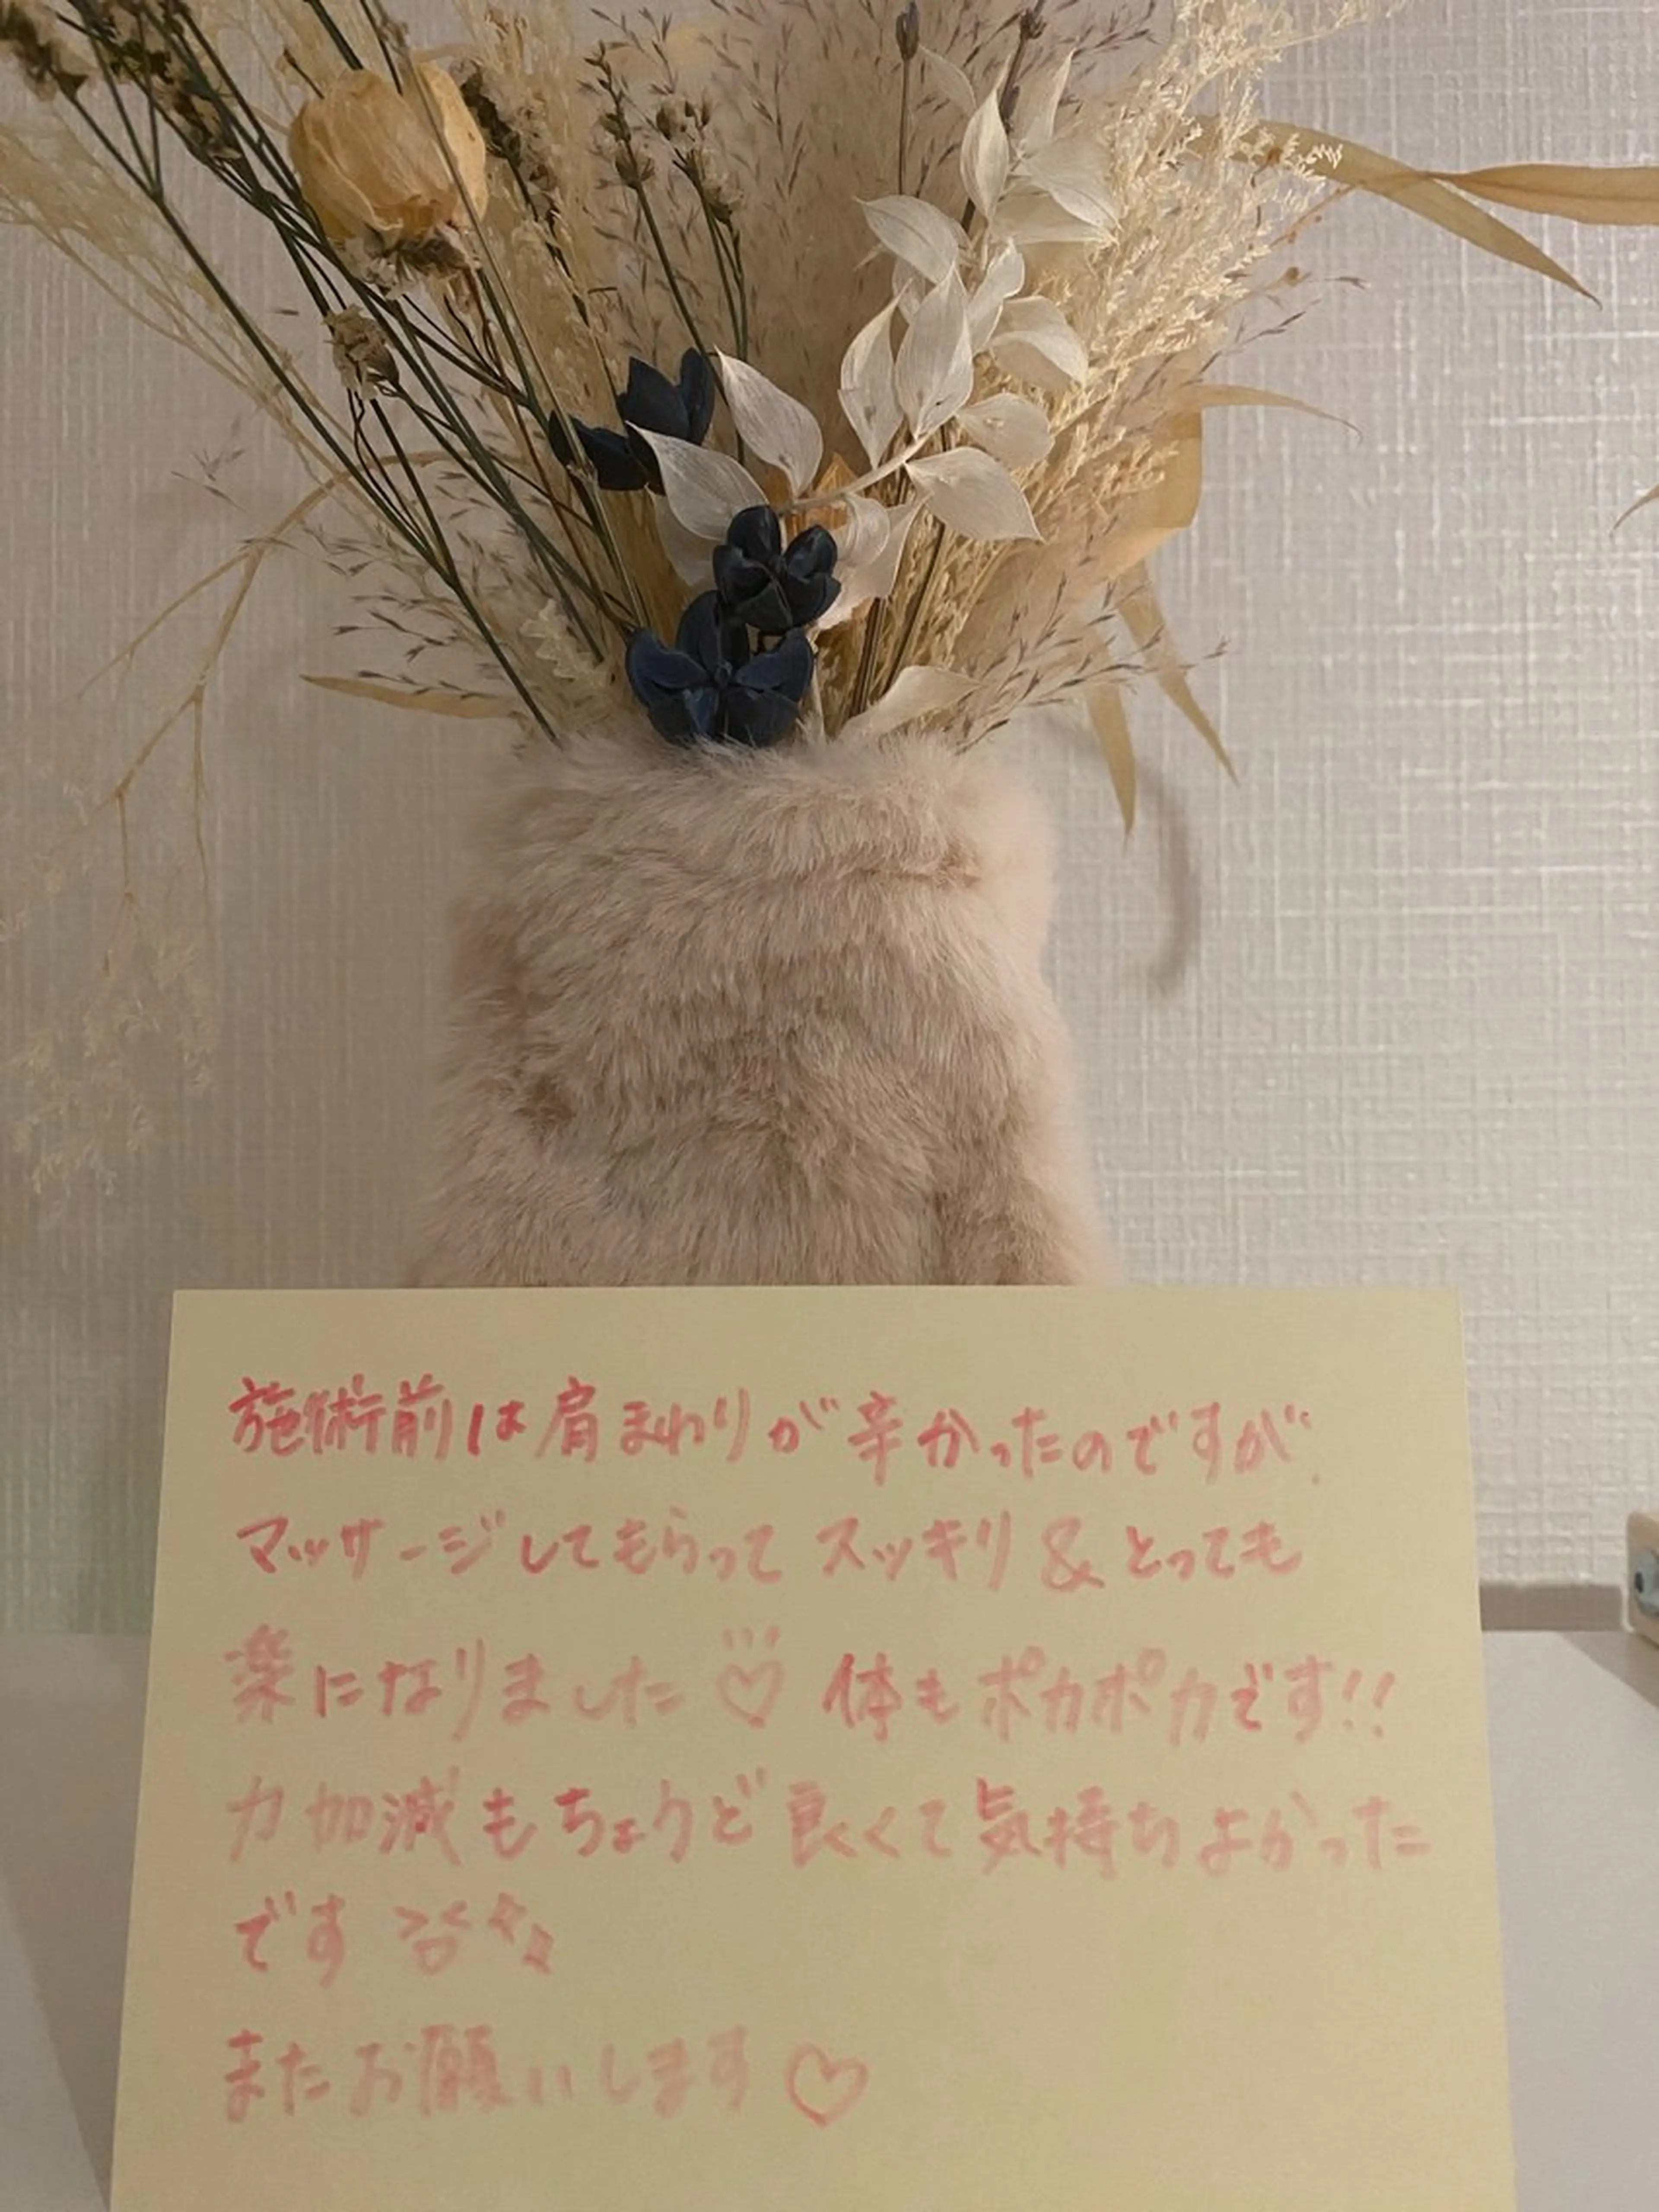 施術前は肩まわりが辛かったのですが、
マッサージしてもらってスッキリ&とっても
楽になりました♡ 体もポカポカです!!
力加減もちょうど良くて気持ちよかった
です
またお願いします♡